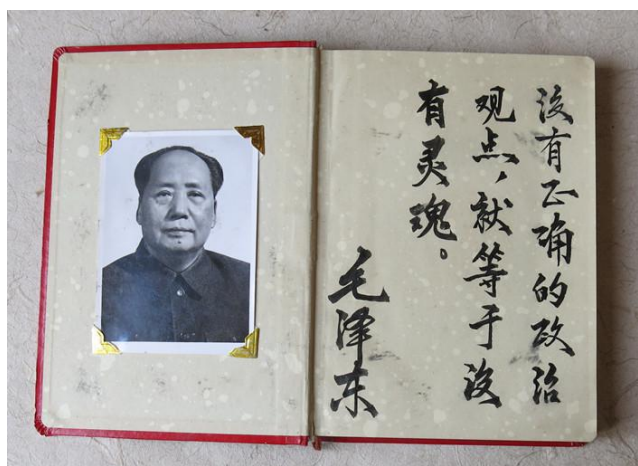 没有正确的政治
观点，就等于没
有灵魂。
毛泽东